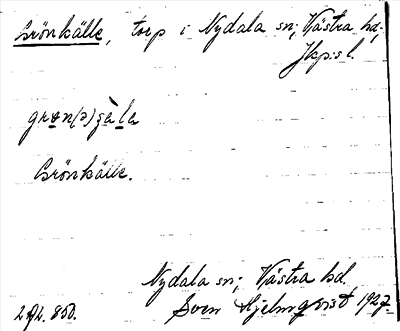 Grönkälle, torp i Nydala sn; Västra hd,
Jkp:s l.
grøn(ə)ҫàla
Grönkälle.
Nydala sn; Västra hd.
Sven Hjelmqvist 1927.